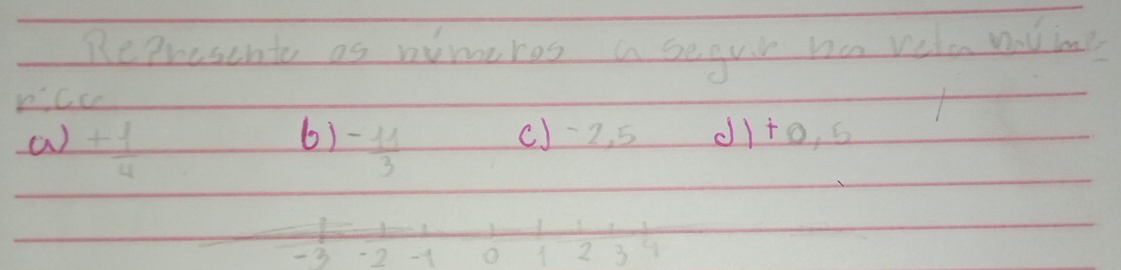 Represente os números a seguir na reta núme-
rica
a) +1/4 b) -11/3 c) -2,5 d) +0,5
-3 -2 -1 0 1 2 3 4